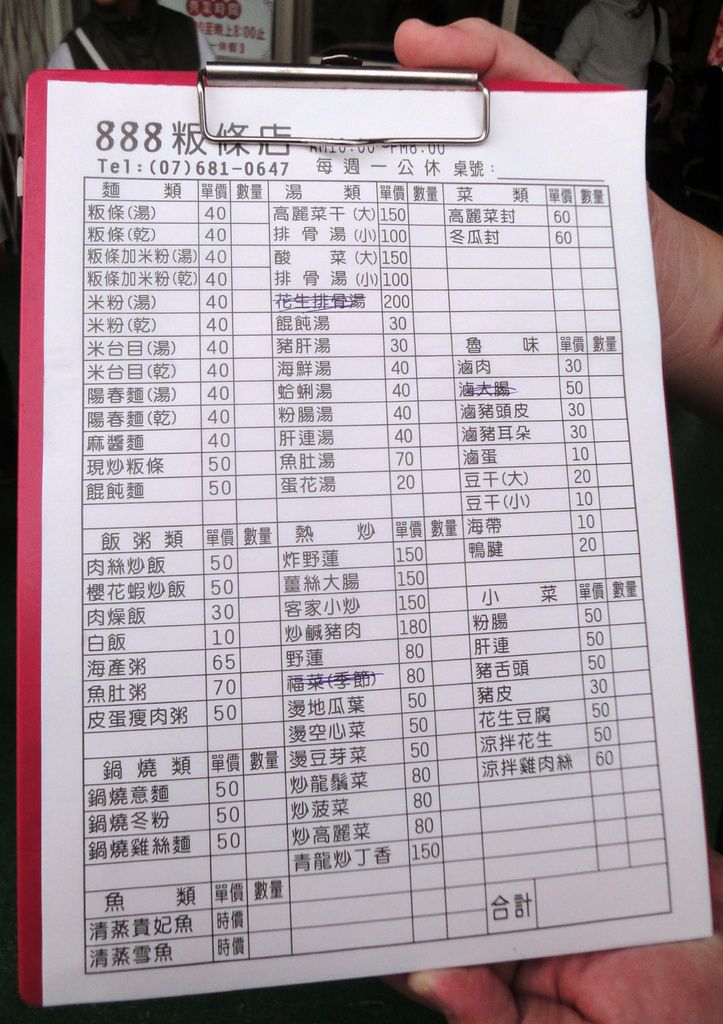 888粄條店 AM10:00~PM8:00
Tel:(07)681-0647 每週一公休 桌號:
麵類 單價 數量
粄條(湯) 40
粄條(乾) 40
粄條加米粉(湯) 40
粄條加米粉(乾) 40
米粉(湯) 40
米粉(乾) 40
米台目(湯) 40
米台目(乾) 40
陽春麵(湯) 40
陽春麵(乾) 40
麻醬麵 40
現炒粄條 50
餛飩麵 50
飯粥類 單價 數量
肉絲炒飯 50
櫻花蝦炒飯 50
肉燥飯 30
白飯 10
海產粥 65
魚肚粥 70
皮蛋瘦肉粥 50
鍋燒類 單價 數量
鍋燒意麵 50
鍋燒冬粉 50
鍋燒雞絲麵 50
魚類 單價 數量
清蒸貴妃魚 時價
清蒸雪魚 時價
湯類 單價 數量
高麗菜干(大) 150
排骨湯(小) 100
酸菜(大) 150
排骨湯(小) 100
花生排骨湯 200
餛飩湯 30
豬肝湯 30
海鮮湯 40
蛤蜊湯 40
粉腸湯 40
肝連湯 40
魚肚湯 70
蛋花湯 20
熱炒 單價 數量
炸野蓮 150
薑絲大腸 150
客家小炒 150
炒鹹豬肉 180
野蓮 80
福菜(季節) 80
燙地瓜葉 50
燙空心菜 50
燙豆芽菜 50
炒龍鬚菜 80
炒菠菜 80
炒高麗菜 80
青龍炒丁香 150
菜類 單價 數量
高麗菜封 60
冬瓜封 60
魯味 單價 數量
滷肉 30
滷大腸 50
滷豬頭皮 30
滷豬耳朵 30
滷蛋 10
豆干(大) 20
豆干(小) 10
海帶 10
鴨腱 20
小菜 單價 數量
粉腸 50
肝連 50
豬舌頭 50
豬皮 30
花生豆腐 50
涼拌花生 50
涼拌雞肉絲 60
合計